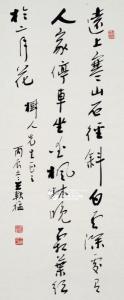 遠上寒山石徑斜白雲深處有
人家停車坐愛楓林晚霜葉紅
於二月花
樹人先生正之
丙辰冬王軟征